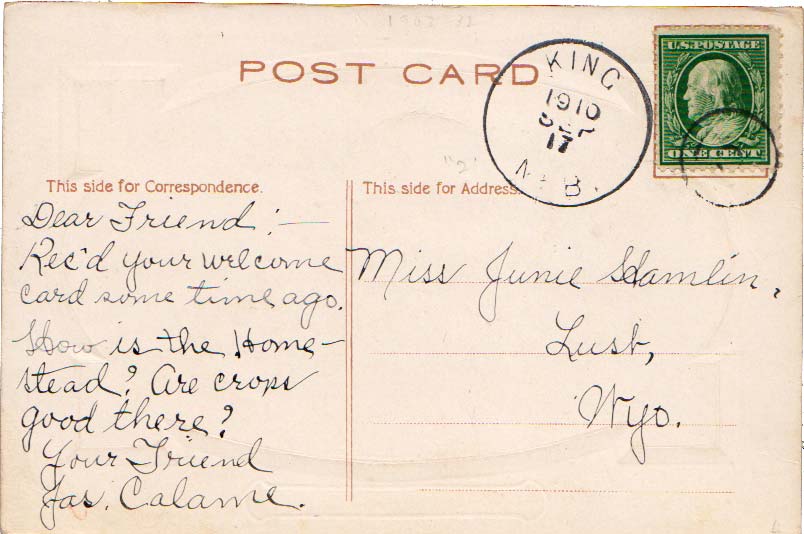 POST CARD
KING
1910
SEP
17
NEB.
U.S. POSTAGE
ONE CENT
This side for Correspondence.
Dear Friend:—
Rec'd your welcome
card some time ago.
How is the Home-
stead? Are crops
good there?
Your Friend
Jas. Calame.
This side for Address.
Miss Junie Hamlin,
Lusk,
Wyo.